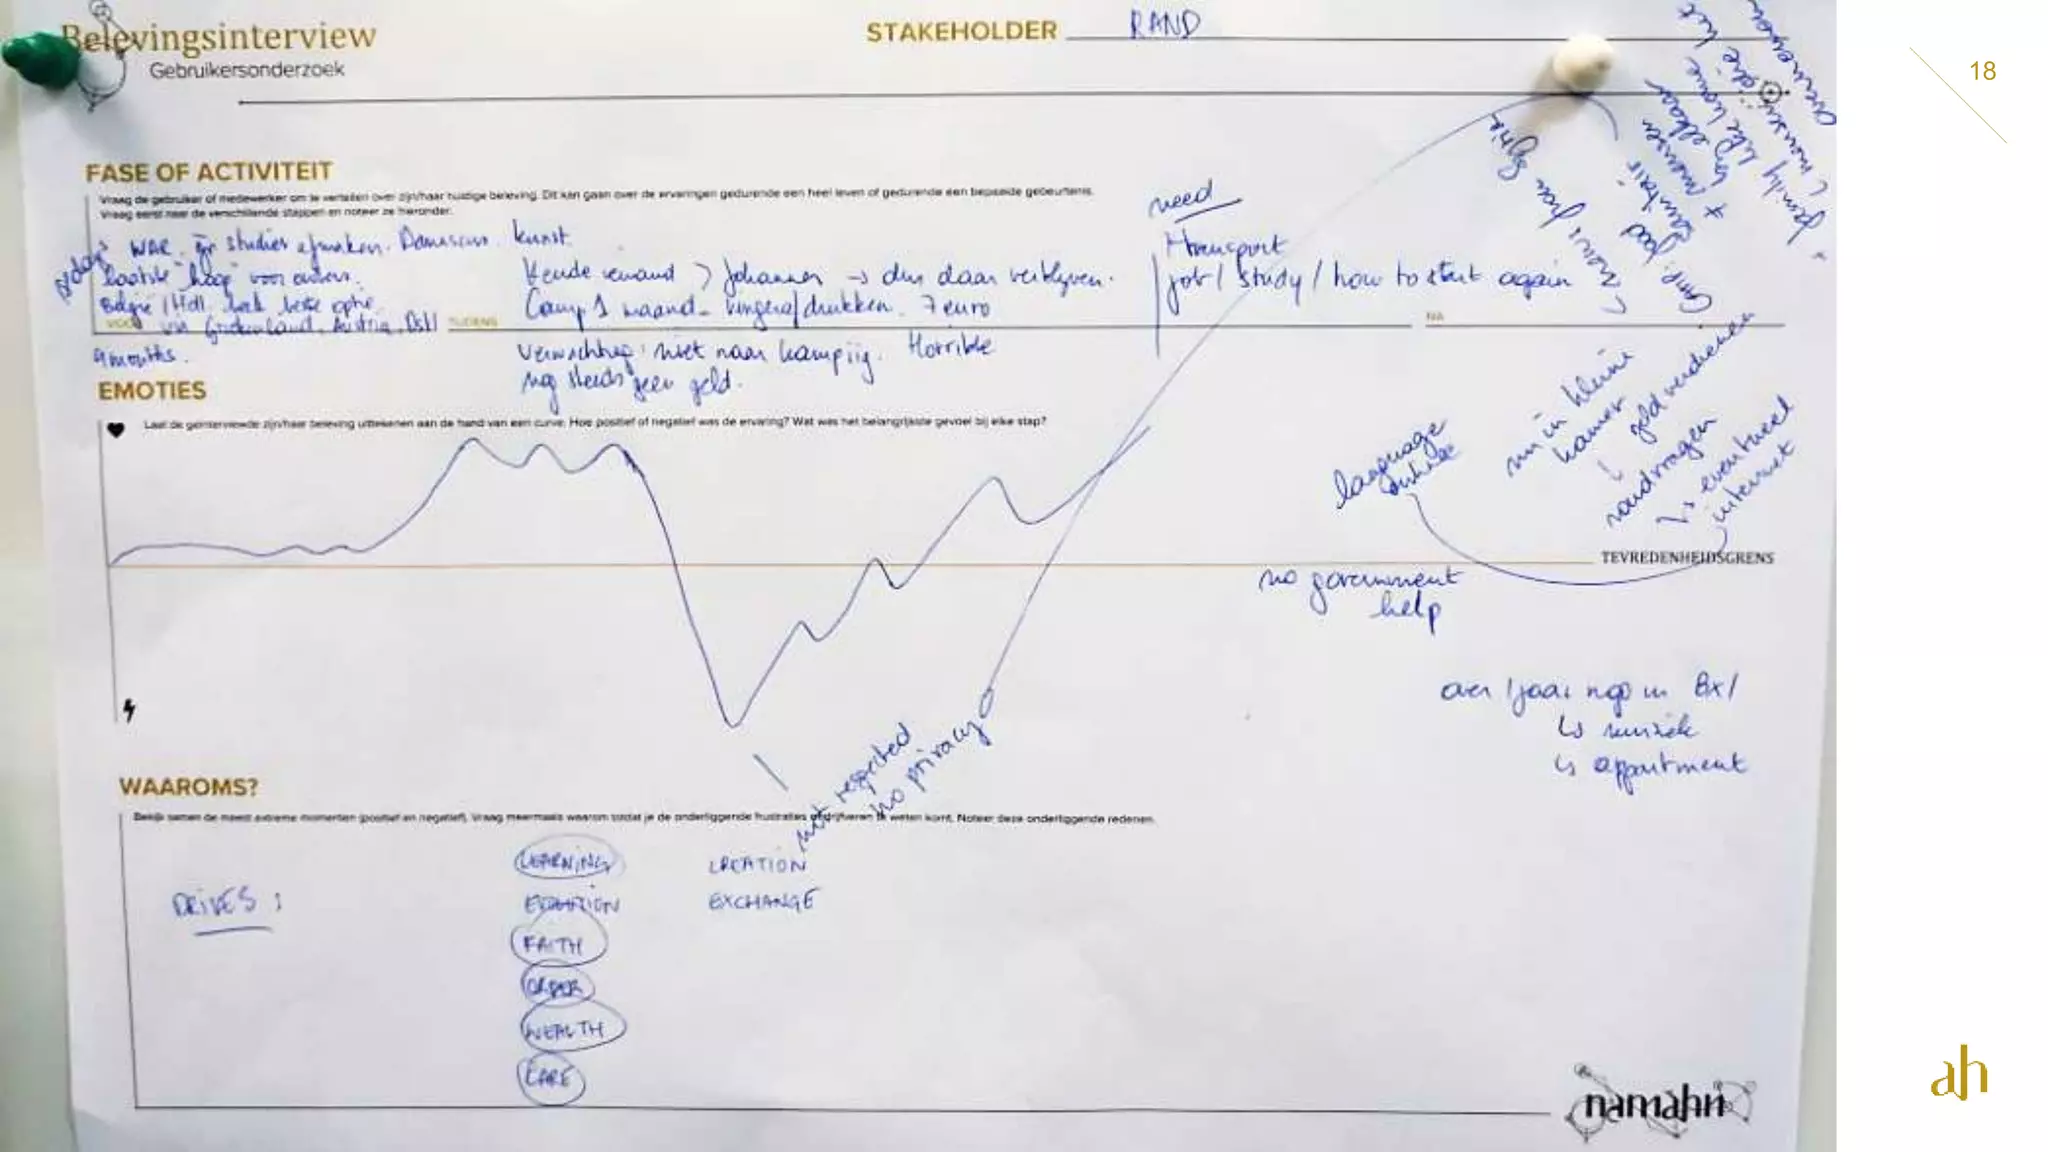 Belevingsinterview
Gebruikersonderzoek
STAKEHOLDER RAND
18
FASE OF ACTIVITEIT
Vraag de gebruiker of medewerker om te vertellen over zijn/haar huidige beleving. Dit kan gaan over de ervaringen gedurende een heel leven of gedurende een bepaalde gebeurtenis.
Vraag eerst naar de verschillende stappen en noteer ze hieronder.
WAR. studies afmaken. Damascus. kunst
laatste "hoop" voor ouders.
België / Hdl. beste optie
via Griekenland, Austria, Dsl
9 months.
Kende iemand > Johannes → dus daar verblijven.
Camp 1 maand - vingerafdrukken. 7 euro
TIJDENS
verwachting: niet naar kamp Horrible
nog steeds geen geld.
need
transport
job / study / how to start again
NA
news from
camp: good
+ mensen
elkaar
family
mensen die
overnemen
EMOTIES
Laat de geïnterviewde zijn/haar beleving uittekenen aan de hand van een curve. Hoe positief of negatief was de ervaring? Wat was het belangrijkste gevoel bij elke stap?
language
nu in kleine
kamer
geld verdienen
rondvragen
↳ eventueel
internet
TEVREDENHEIDSGRENS
no government
help
over 1 jaar nog in Bxl
↳ muziek
↳ appartment
not respected
no privacy
WAAROMS?
Bekijk samen de meest extreme momenten (positief en negatief). Vraag meermaals waarom zodat je de onderliggende frustraties of drijfveren te weten komt. Noteer deze onderliggende redenen.
DRIVES:
LEARNING
CREATION
EXCHANGE
FAITH
ORDER
WEALTH
CARE
namahn
ah